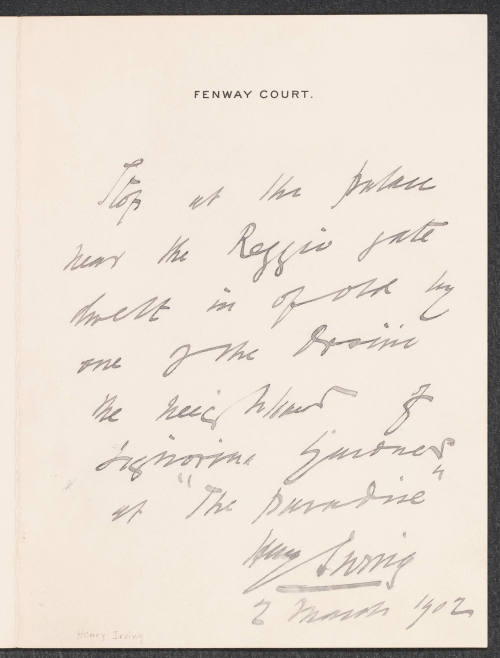 FENWAY COURT.
Stop at the palace
near the Reggio gate
dwelt in of old by
one of the Orsini
the neighbour of
Signorina Gardner
at "The Paradise"
Henry Irving
2 March 1902
Henry Irving